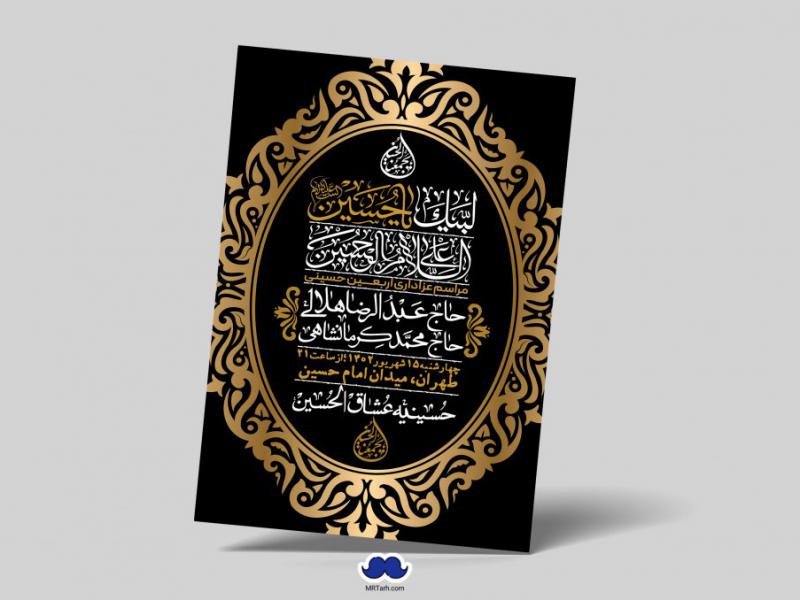 لبیک یا حسین علیه السلام
السلام علی الحسین
مراسم عزاداری اربعین حسینی
حاج عبدالرضا هلالی
حاج محمد کرمانشاهی
چهارشنبه ۱۵ شهریور ۱۴۰۲ | از ساعت ۲۱
طهران، میدان امام حسین
حسینیه عشاق الحسین
MRTarh.com